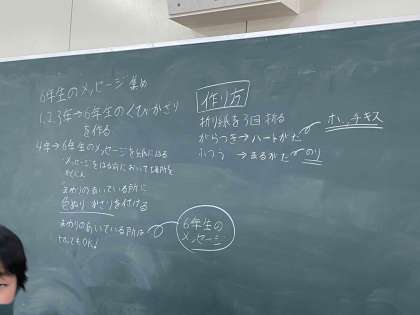 6年生のメッセージ集め
1.2.3年→6年生のくびかざり
を作る
4年→6年生のメッセージを紙にはる
メッセージをはる前において場所を
かくにん
まわりのあいている所に
色ぬり かざりを付ける
まわりのあいている所は
ぬってもOK!
6年生の
メッセージ
作り方
折り紙を3回折る
がらつき→ハートがた
ホッチキス
ふつう→まるがた
のり